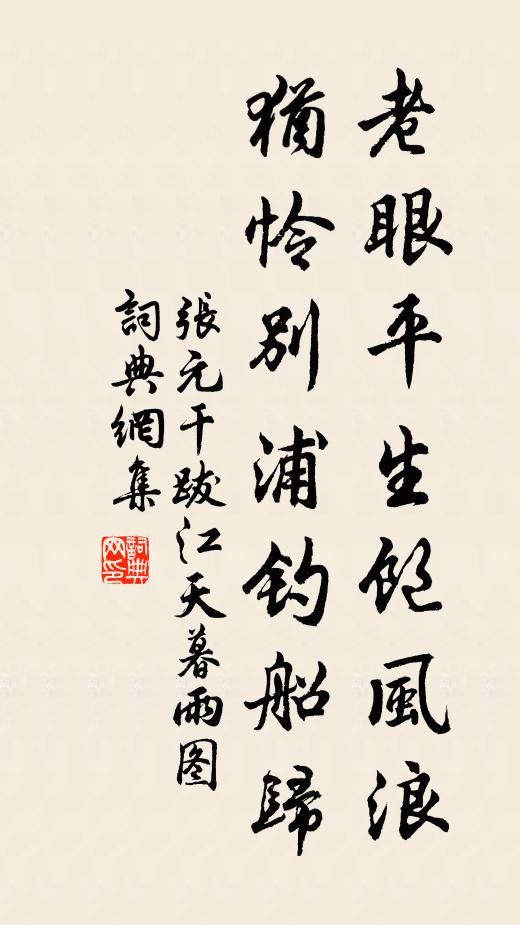 老眼平生飽風浪
猶怜別浦釣船歸
張元干跋江天暮雨图
詞典網集
詞典网印